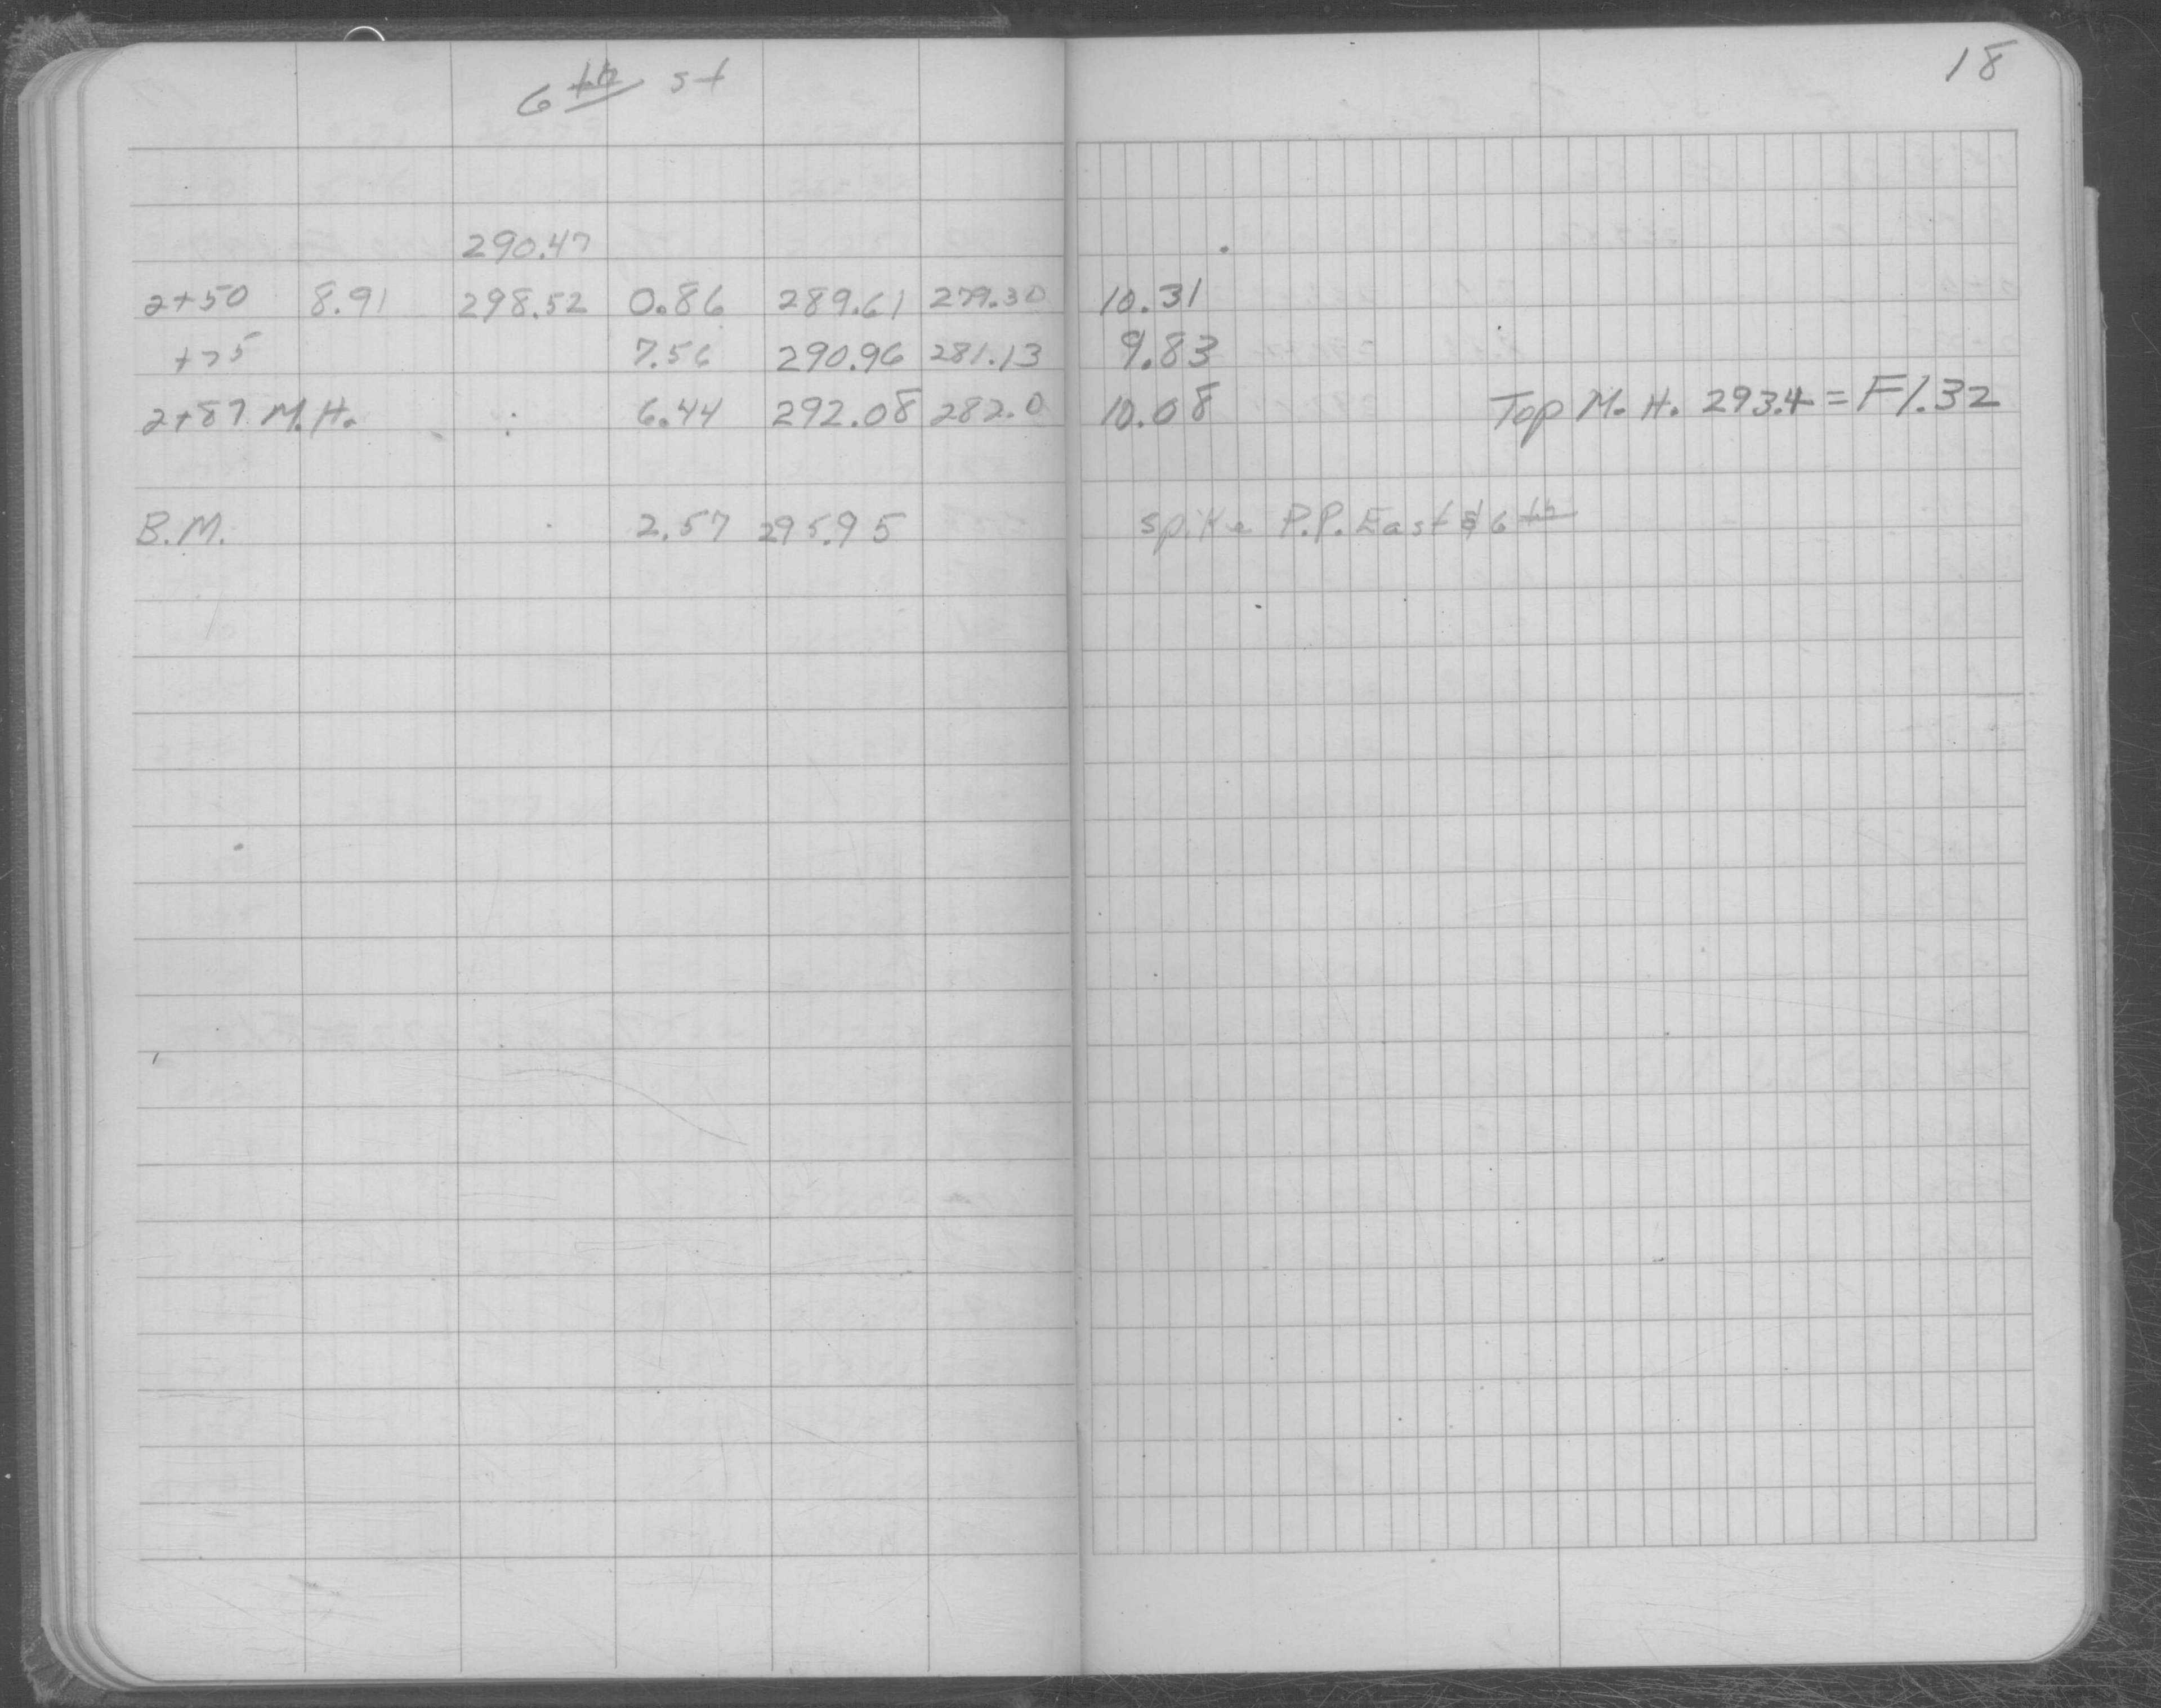 6th st
18
290.47
2+50 8.91 298.52 0.86 289.61 279.30 10.31
+75 7.56 290.96 281.13 9.83
2+87 M.H. 6.44 292.08 282.0 10.08 Top M.H. 293.4 = F1.32
B.M. 2.57 295.95 spike P.P. East & 6th